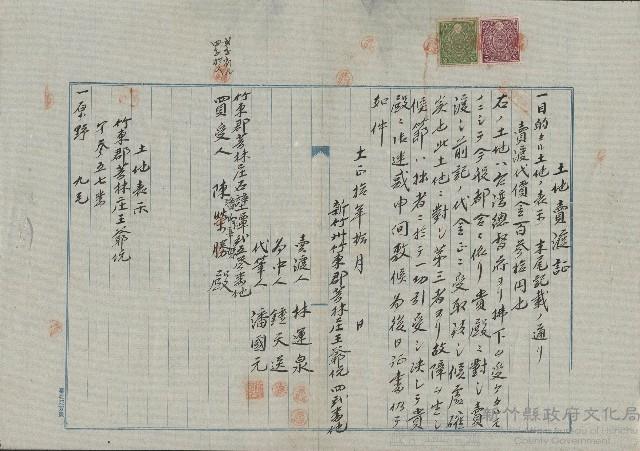 土地賣渡証
一目的タル土地ノ表示 末尾記載ノ通リ
賣渡代價金百參拾円也
右ノ土地ハ台湾總督府ヨリ拂下ヲ受ケタル
モノニシテ今般都合ニ依リ貴殿ニ對シ賣
渡シ前記ノ代金正ニ受取候處確
実也此土地ニ對シ第三者ヨリ故障ヲ生シ
候節ハ拙者ニ於テ一切引受ケ決シテ貴
殿ニ御迷惑申間敷候為後日証書仍テ
如件
大正拾年拾月 日
新竹州竹東郡芎林庄王爺坑四番地
賣渡人 林運泉
為中人 鍾天送
代筆人 潘國元
竹東郡芎林庄石壁潭
買受人 陳榮勝 殿
土地表示
竹東郡芎林庄王爺坑
參五七番
一原野 九毛
新竹縣政府文化局
Cultural Affairs Bureau of Hsinchu
County Government